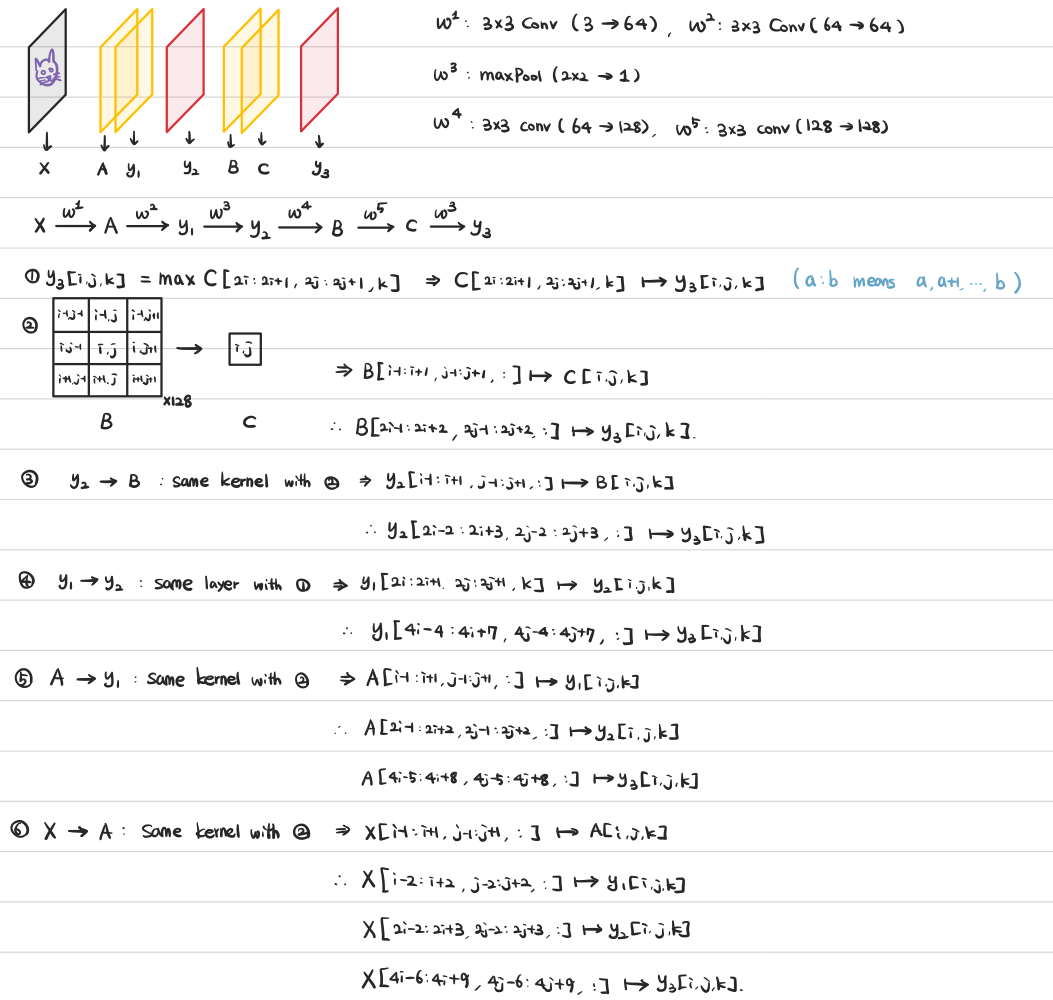 w¹ : 3x3 Conv (3 → 64), w² : 3x3 Conv (64 → 64)
w³ : maxPool (2x2 → 1)
w⁴ : 3x3 conv (64 → 128), w⁵ : 3x3 conv (128 → 128)
↓ ↓ ↓ ↓ ↓ ↓ ↓
X A y₁ y₂ B C y₃
X —w¹→ A —w²→ y₁ —w³→ y₂ —w⁴→ B —w⁵→ C —w³→ y₃
① y₃[i,j,k] = max C[2i:2i+1, 2j:2j+1, k] ⇒ C[2i:2i+1, 2j:2j+1, k] ↦ y₃[i,j,k] (a:b means a, a+1, ⋯, b)
②
i-1,j-1 i-1,j i-1,j+1
i,j-1 i,j i,j+1 → i,j
i+1,j-1 i+1,j i+1,j+1
x128
B C
⇒ B[i-1:i+1, j-1:j+1, :] ↦ C[i,j,k]
∴ B[2i-1:2i+2, 2j-1:2j+2, :] ↦ y₃[i,j,k].
③ y₂ → B : same kernel with ② ⇒ y₂[i-1:i+1, j-1:j+1, :] ↦ B[i,j,k]
∴ y₂[2i-2:2i+3, 2j-2:2j+3, :] ↦ y₃[i,j,k]
④ y₁ → y₂ : same layer with ① ⇒ y₁[2i:2i+1, 2j:2j+1, k] ↦ y₂[i,j,k]
∴ y₁[4i-4:4i+7, 4j-4:4j+7, :] ↦ y₃[i,j,k]
⑤ A → y₁ : same kernel with ② ⇒ A[i-1:i+1, j-1:j+1, :] ↦ y₁[i,j,k]
∴ A[2i-1:2i+2, 2j-1:2j+2, :] ↦ y₂[i,j,k]
A[4i-5:4i+8, 4j-5:4j+8, :] ↦ y₃[i,j,k]
⑥ X → A : same kernel with ② ⇒ X[i-1:i+1, j-1:j+1, :] ↦ A[i,j,k]
∴ X[i-2:i+2, j-2:j+2, :] ↦ y₁[i,j,k]
X[2i-2:2i+3, 2j-2:2j+3, :] ↦ y₂[i,j,k]
X[4i-6:4i+9, 4j-6:4j+9, :] ↦ y₃[i,j,k].